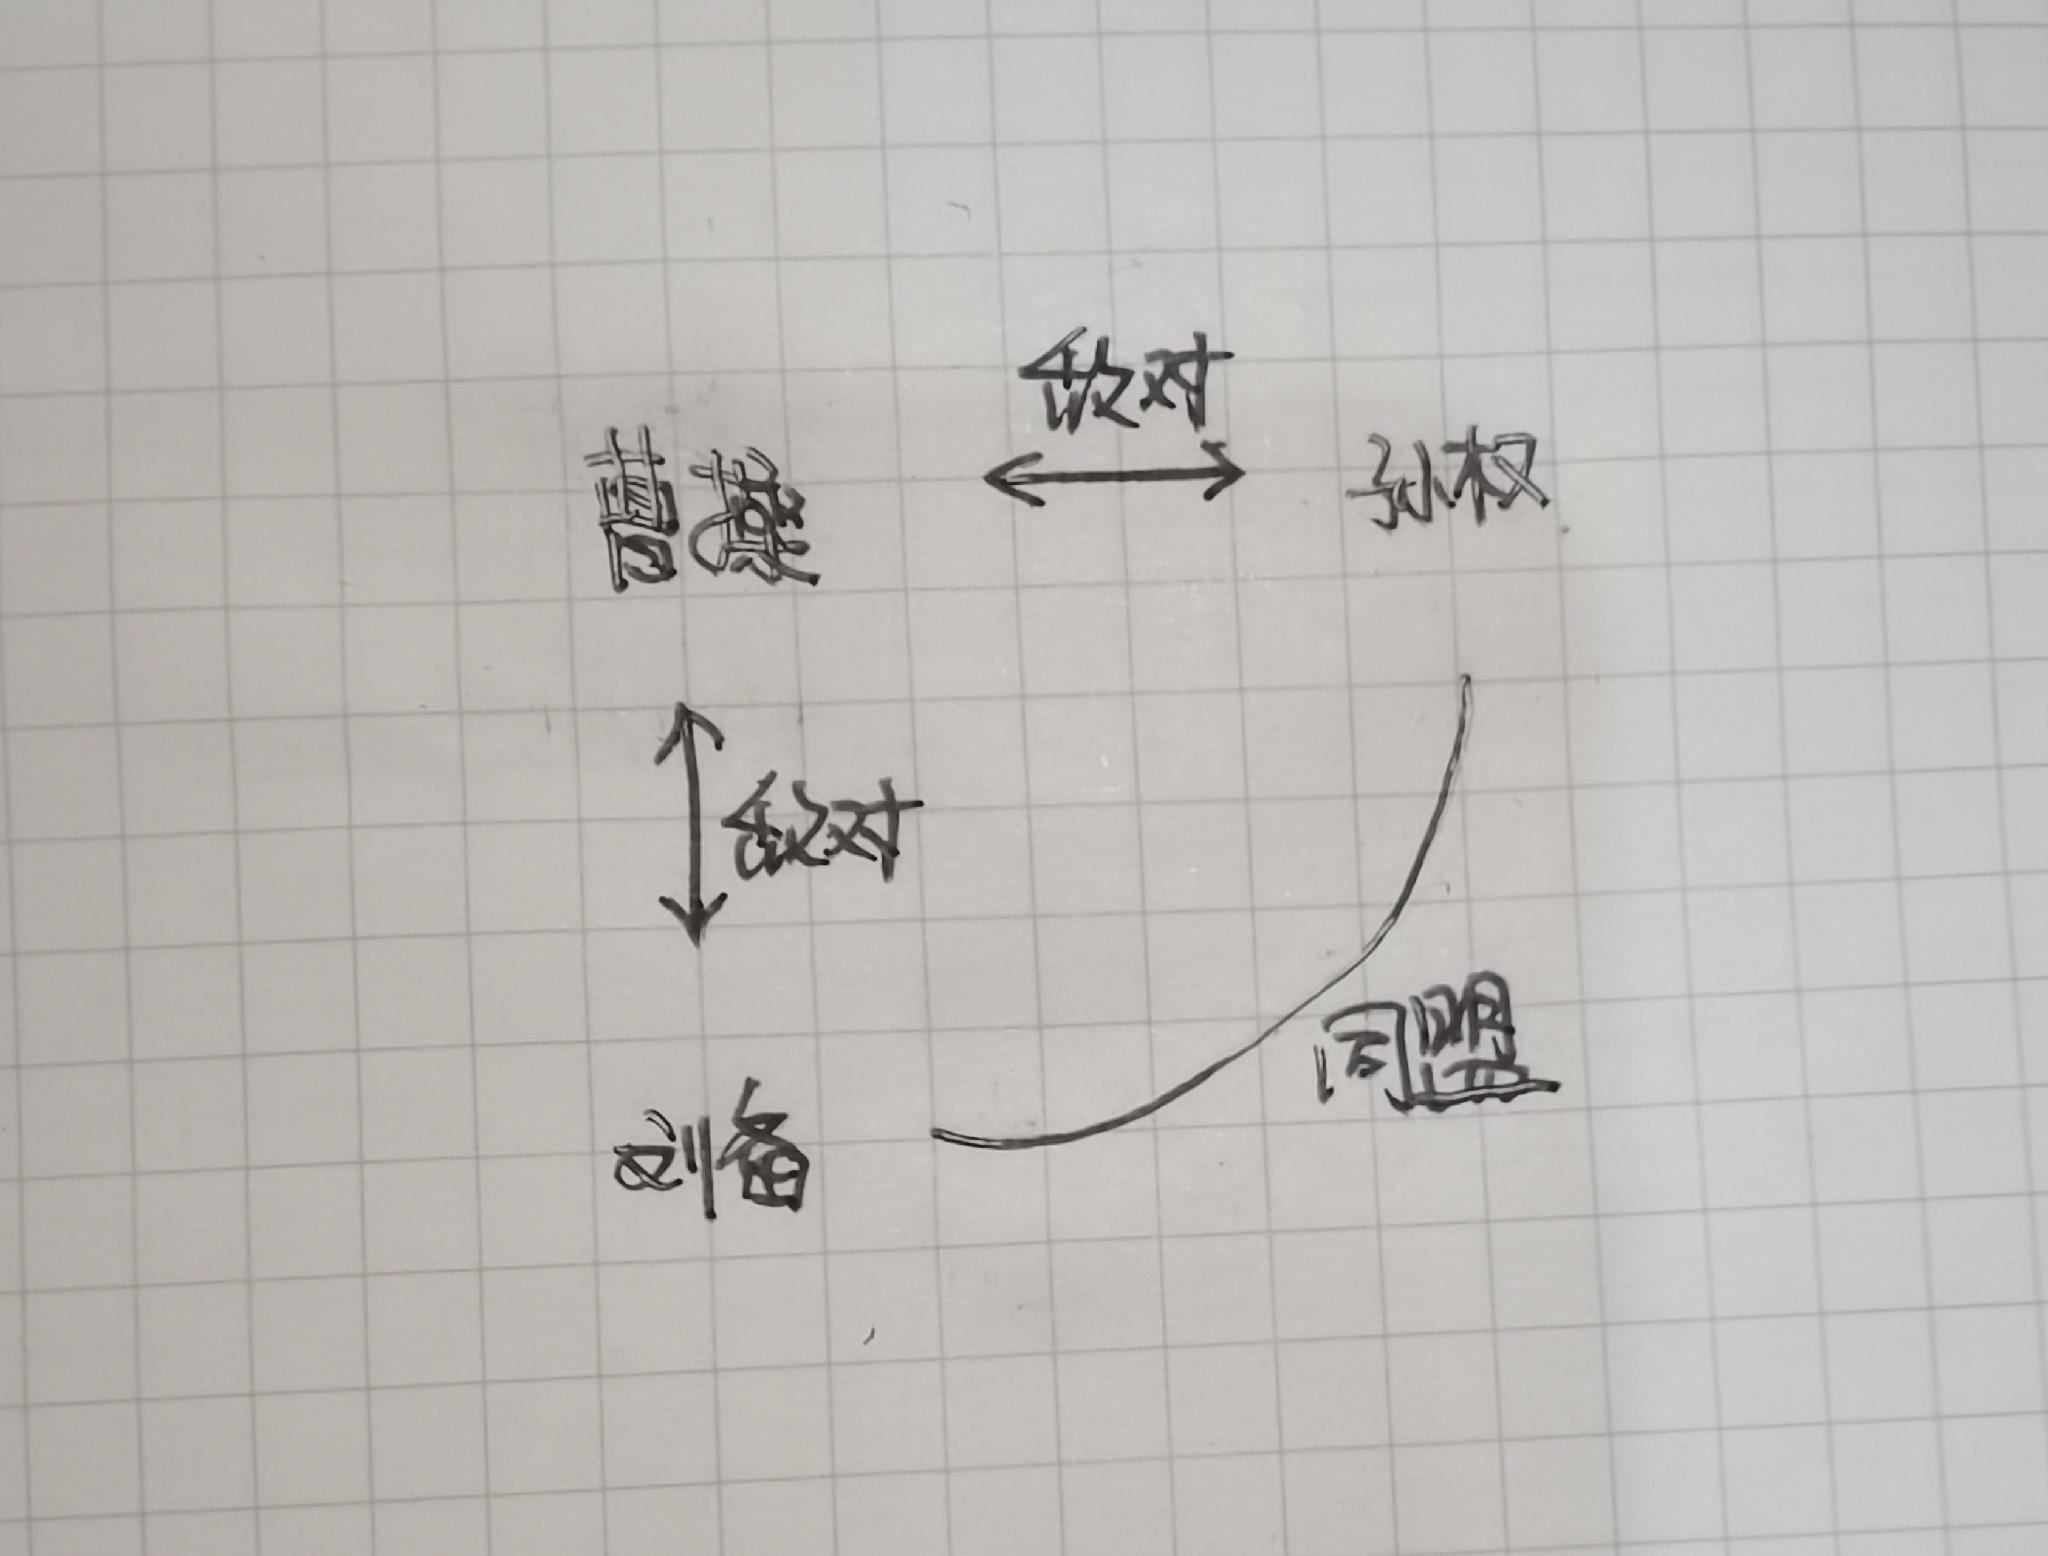 敌对
曹操
孙权
敌对
同盟
刘备